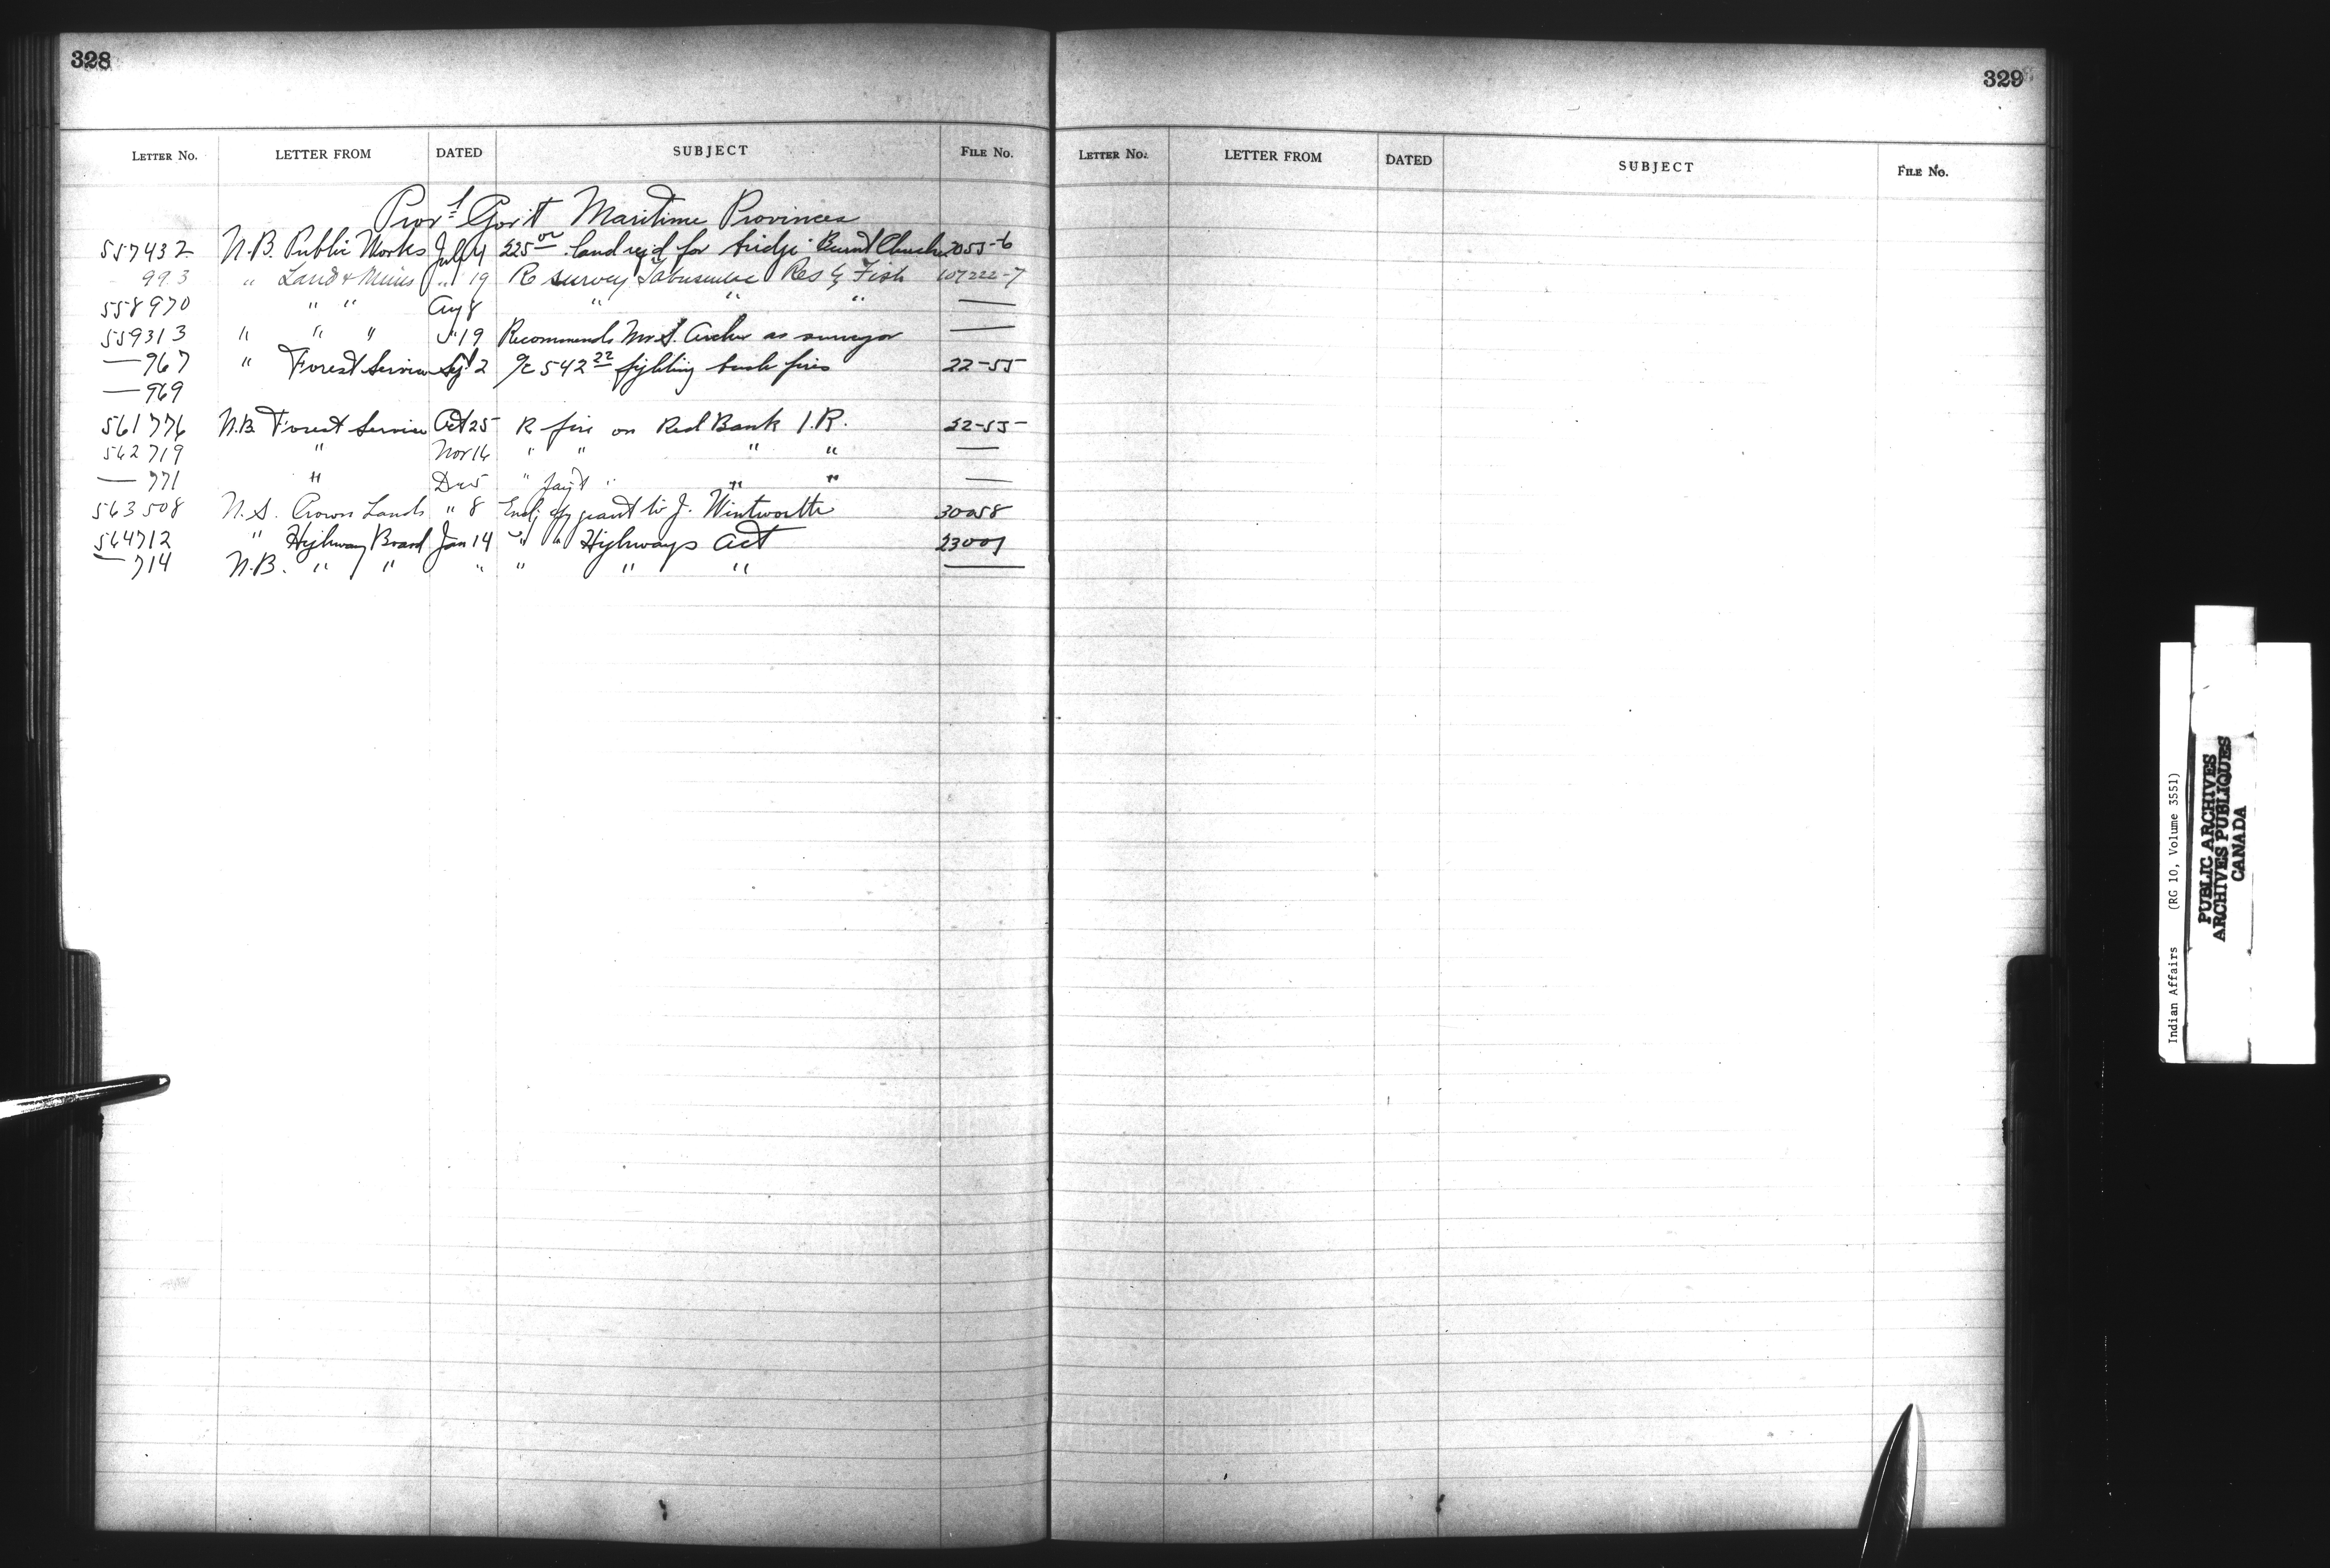 328
LETTER No. LETTER FROM DATED SUBJECT FILE No.
Prov'l Gov't Maritime Provinces
557432 N.B. Public Works July 4 225 00 land req'd for bridge Burnt Church 7055-6
993 " Land & Mines " 19 Re survey Tabusintac Res & Fish 107222-7
558970 " " Aug 8 " " " —
559313 " " " " 19 Recommends Mr S. Archer as surveyor —
— 967 " Forest Service Sept 2 a/c 542 22 fighting bush fires 22-55
— 969
561776 N.B. Forest Service Oct 25 R fire on Red Bank I.R. 22-55-
562719 " Nov 16 " " " " —
— 771 " Dec 5 " " " " —
563508 N.S. Crown Lands " 8 Encl cpy grant to J. Wintworth 30058
564712 " Highway Board Jan 14 " " Highways Act 23001
— 714 N.B. " " " " " " —
329
LETTER No. LETTER FROM DATED SUBJECT FILE No.
Indian Affairs (RG 10, Volume 3551)
PUBLIC ARCHIVES
ARCHIVES PUBLIQUES
CANADA